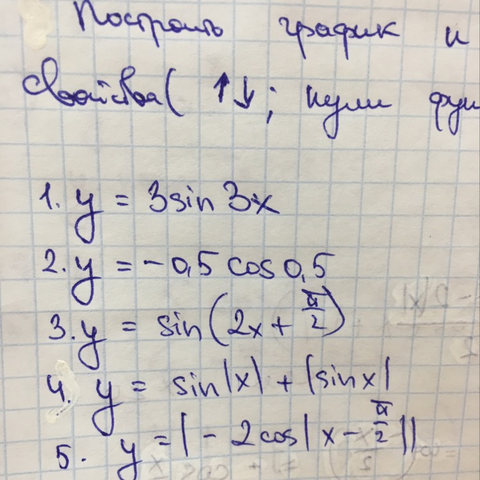 Построить график и
свойства( ↑↓; нули фун
1. y = 3sin 3x
2. y = -0,5 cos 0,5
3. y = sin(2x + π/2)
4. y = sin|x| + |sinx|
5. y = |-2cos|x - π/2||